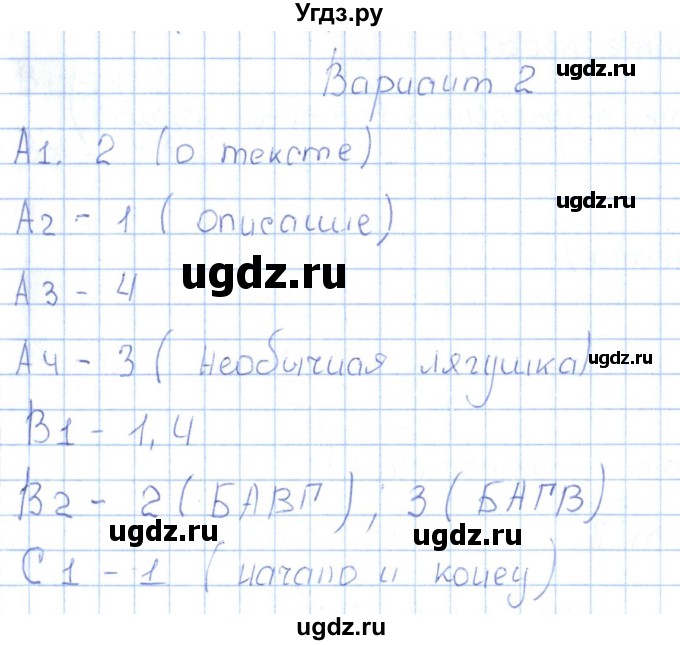 Угдз.ру
Вариант 2
ugdz.ru
А1. 2 (о тексте)
А2 - 1 (описание)
ugdz.ru
ugdz.ru
А3 - 4
А4 - 3 (необычная лягушка)
ugdz.ru
В1 - 1, 4
В2 - 2 (БАВГ), 3 (БАГВ)
ugdz.ru
ugdz.ru
С1 - 1 (начало и конец)
ugdz.ru